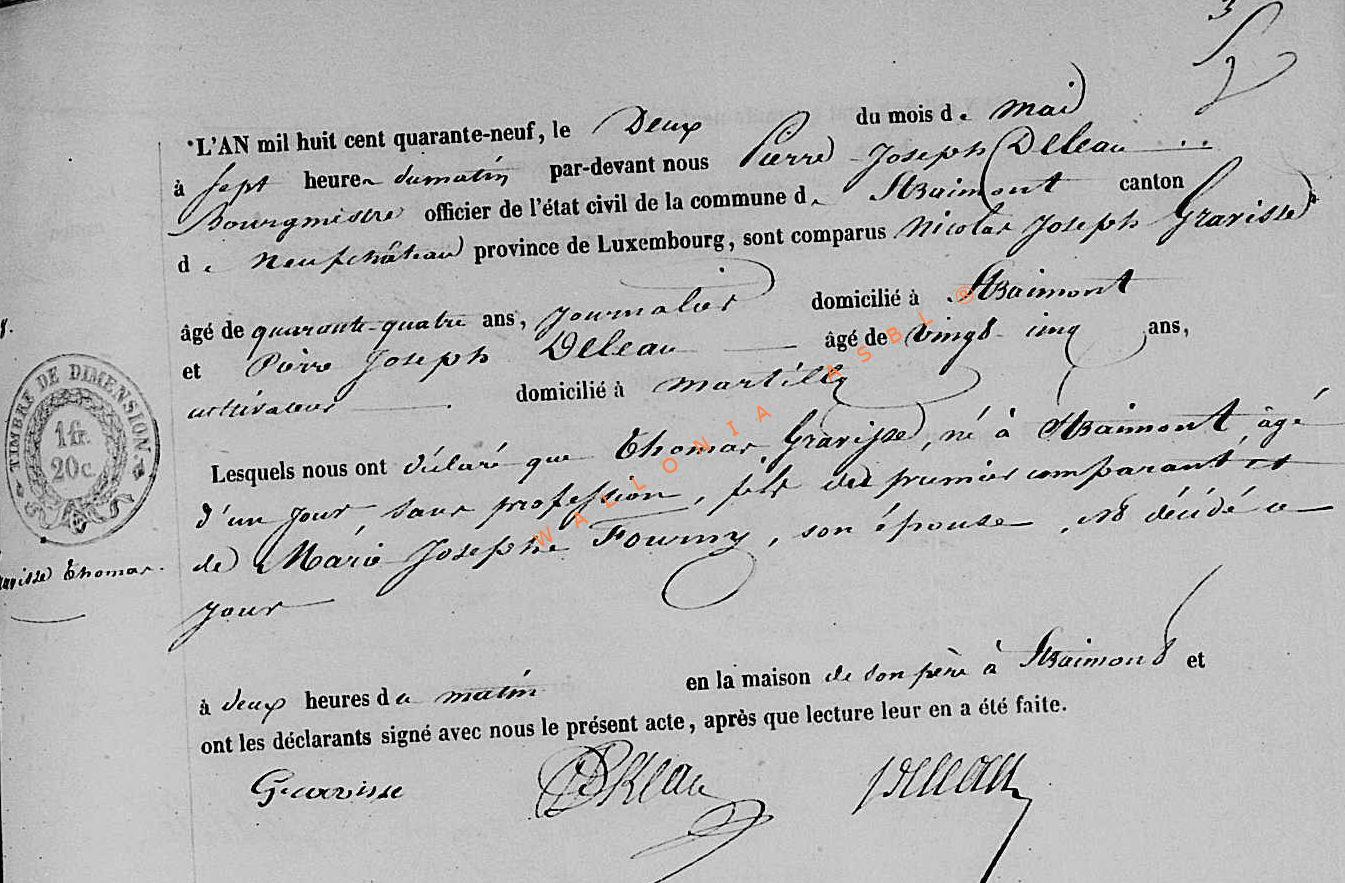 3
L'AN mil huit cent quarante-neuf, le Deux du mois de mai
à sept heures du matin par-devant nous Pierre Joseph Deleau
Bourgmestre officier de l'état civil de la commune de Straimont canton
de Neufchâteau province de Luxembourg, sont comparus Nicolas Joseph Gravisse
âgé de quarante-quatre ans, journalier domicilié à Straimont
et Pierre Joseph Deleau âgé de vingt cinq ans,
cultivateur domicilié à Martilly
Lesquels nous ont déclaré que Thomas Gravisse, né à Straimont, âgé
d'un jour, sans profession, fils du premier comparant et
de Marie Josephe Fourny, son épouse, est décédé ce
jour
à deux heures du matin en la maison de son père à Straimont et
ont les déclarants signé avec nous le présent acte, après que lecture leur en a été faite.
Gravisse Deleau Deleau
TIMBRE DE DIMENSION.
1 fr.
20 c.
Thomas.
WALLONIA ASBL ®